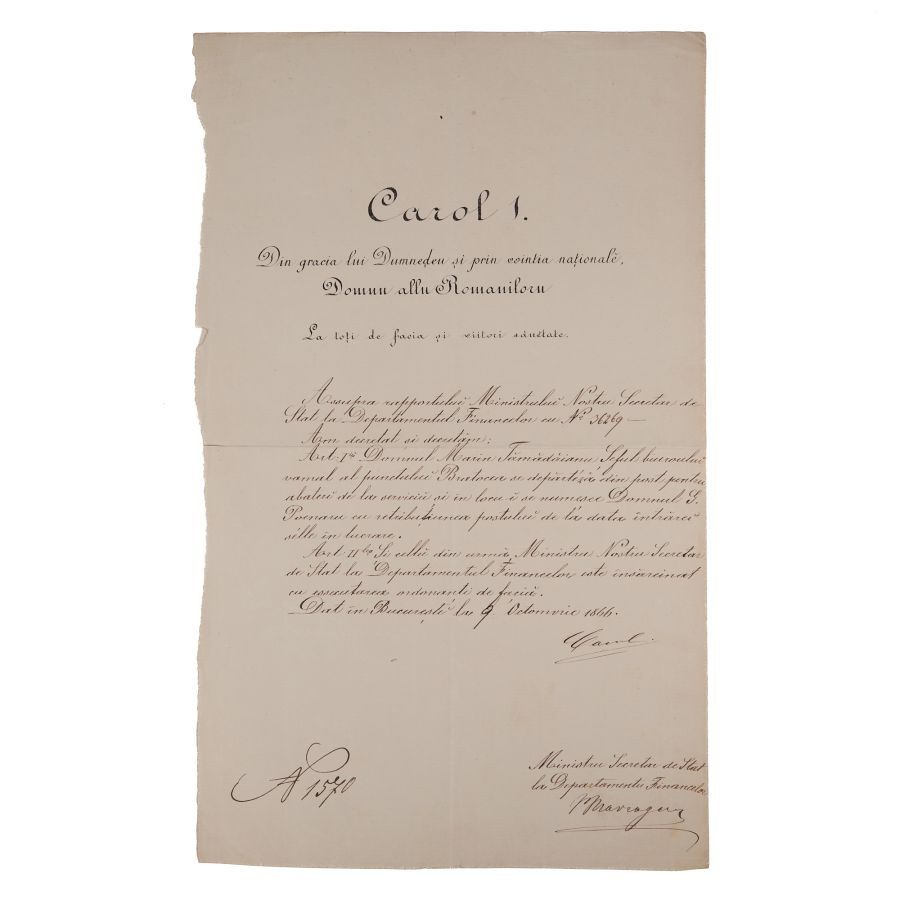 Carol I.
Din gracia lui Dumnedeu și prin vointia naționalĕ,
Domnu allu Romaniloru
La toți de facia și viitori sănĕtate.
Assupra rapportului Ministrului Nostru Secretar de
Stat la Departamentul Financelor cu Nº 36269 —
Am decretat și decretăm:
Art: I Domnul Marin Tămădăianu Șeful biuroului
vamal al punctului Bratocea se depărtéză din post pentru
abateri de la serviciu și in locu-i se numesce Domnul G.
Poenaru cu retribuțiunea postului de la data intrărei
sélle in lucrare.
Art II Și cellu din urmă, Ministru Nostru Secretar
de Stat la Departamentul Financelor este însărcinat
cu essecutarea ordonanti de faciă.
Dat in Bucuresti la 9 Octomvrie 1866.
Carol
Ministru Secretar de Stat
la Departamentu Financelor
N 1570